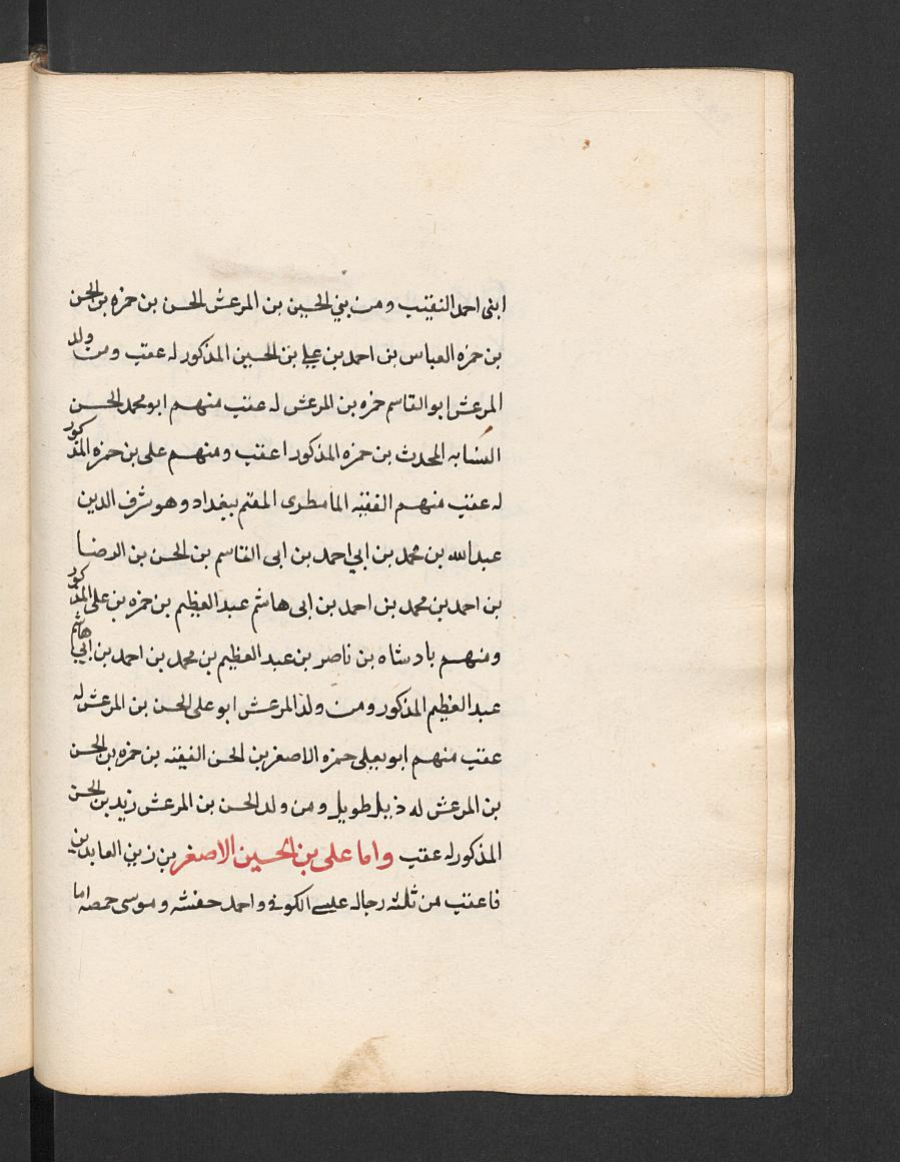 ابنى احمد النقيب ومن بني الحسين بن المرعش الحسن بن حمزه بن الحسن
بن حمزه العباس بن احمد بن علي بن الحسين المذكور له عقب ومن ولد
المرعش ابو القاسم حمزه بن المرعش له عقب منهم ابو محمد الحسن
النسابه المحدث بن حمزه المذكور اعقب ومنهم على بن حمزه المذكور
له عقب منهم الفقيه المامطرى المقيم ببغداد وهو شرف الدين
عبد الله بن محمد بن ابي احمد بن ابى القاسم بن الحسن بن الرضا
بن احمد بن محمد بن احمد بن ابى هاشم عبد العظيم بن حمزه بن على المذكور
ومنهم بادشاه بن ناصر بن عبد العظيم بن محمد بن احمد بن ابي هاشم
عبد العظيم المذكور ومن ولد المرعش ابو على الحسن بن المرعش له
عقب منهم ابو يعلى حمزه الاصغر بن الحسن الفقيه بن حمزه بن الحسن
بن المرعش له ذيل طويل ومن ولد الحسن بن المرعش زيد بن الحسن
المذكور له عقب واما على بن الحسين الاصغر بن زين العابدين
فاعقب من ثلثه رجال عيسى الكوفى واحمد حقنيه وموسى حمصه اما